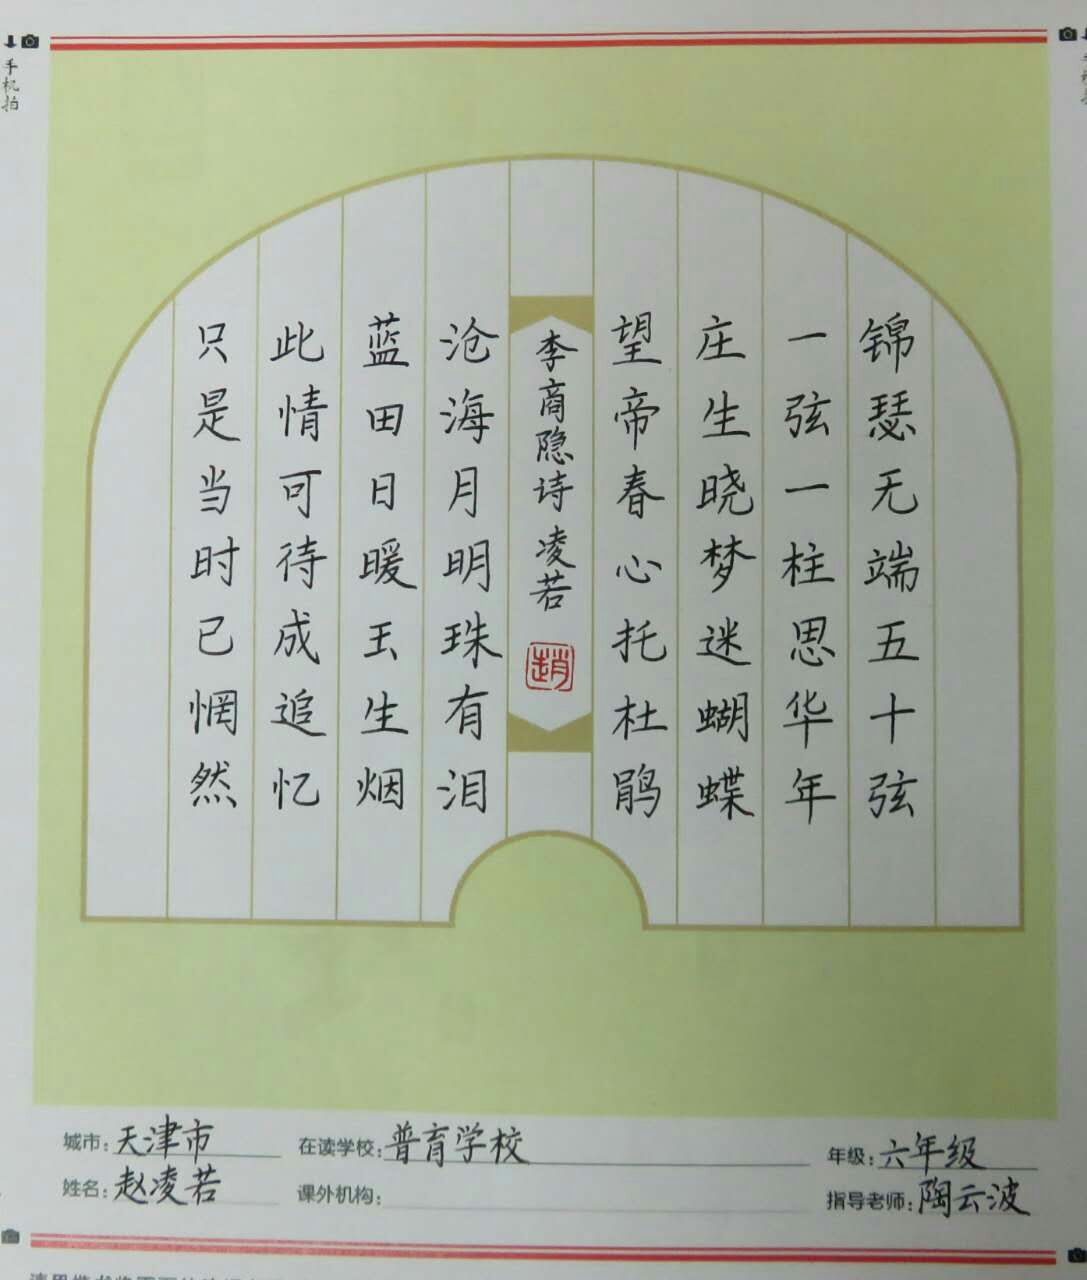 手机拍
锦瑟无端五十弦
一弦一柱思华年
庄生晓梦迷蝴蝶
望帝春心托杜鹃
李商隐诗 凌若
趙
沧海月明珠有泪
蓝田日暖玉生烟
此情可待成追忆
只是当时已惘然
城市：天津市 在读学校：普育学校 年级：六年级
姓名：赵凌若 课外机构： 指导老师：陶云波